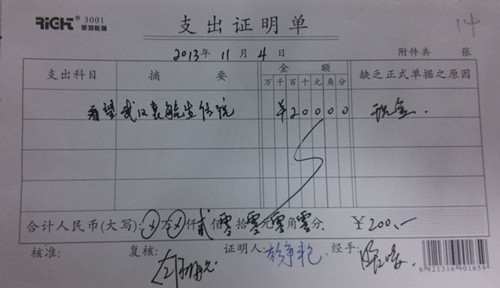 RiCH 3001
支出证明单
14
2013年11月4日 附件共 张
支出科目 摘要 金额 缺乏正式单据之原因
万千百十元角分
看望武汉袁 生住院 ¥20000 现金
合计人民币(大写): ⊗万⊗仟贰佰零拾零元零角零分 ¥200.-
核准: 复核: 证明人: 经手:
6921316901659